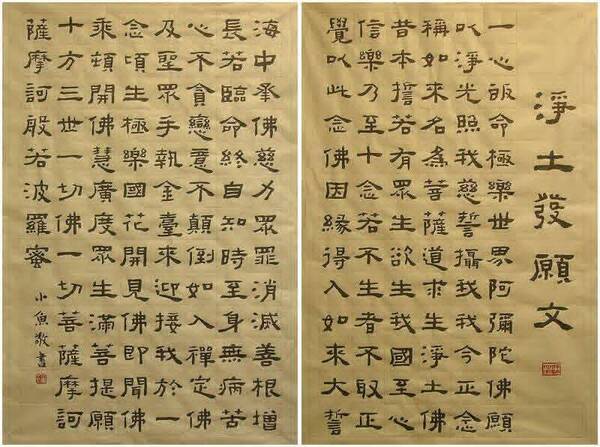 淨土發願文
一心皈命極樂世界阿彌陀佛願
以淨光照我慈誓攝我我今正念
稱如來名為菩薩道求生淨土佛
昔本誓若有眾生欲生我國至心
信樂乃至十念若不生者不取正
覺以此念佛因緣得入如來大誓
海中承佛慈力眾罪消滅善根增
長若臨命終自知時至身無病苦
心不貪戀意不顛倒如入禪定佛
及聖眾手執金臺來迎接我於一
念頃生極樂國花開見佛即聞佛
乘頓開佛慧廣度眾生滿菩提願
十方三世一切佛一切菩薩摩訶
薩摩訶般若波羅蜜
小魚敬書